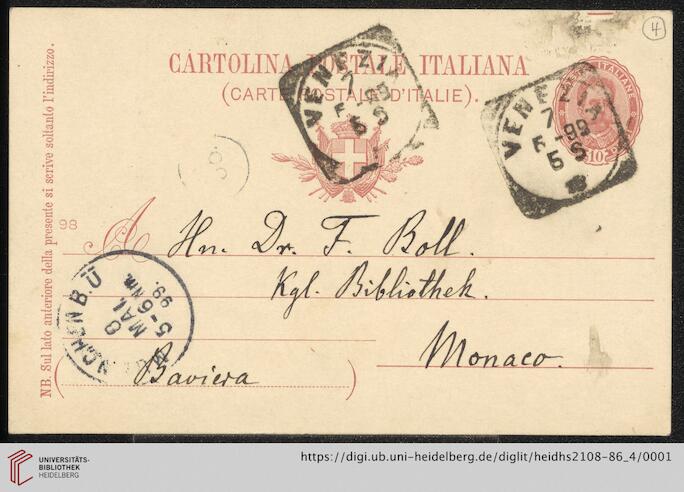 4
CARTOLINA POSTALE ITALIANA
(CARTE POSTALE D'ITALIE).
VENEZIA
7
5-99
5 S
VENEZIA
7
5-99
5 S
POSTE ITALIANE
10
NB. Sul lato anteriore della presente si scrive soltanto l'indirizzo.
98
A
Hn. Dr. F. Boll.
Kgl. Bibliothek.
Monaco.
(Baviera)
MÜNCHEN B.Ü
8
MAI.
5-6 NM.
99.
UNIVERSITÄTS-
BIBLIOTHEK
HEIDELBERG
https://digi.ub.uni-heidelberg.de/diglit/heidhs2108-86_4/0001